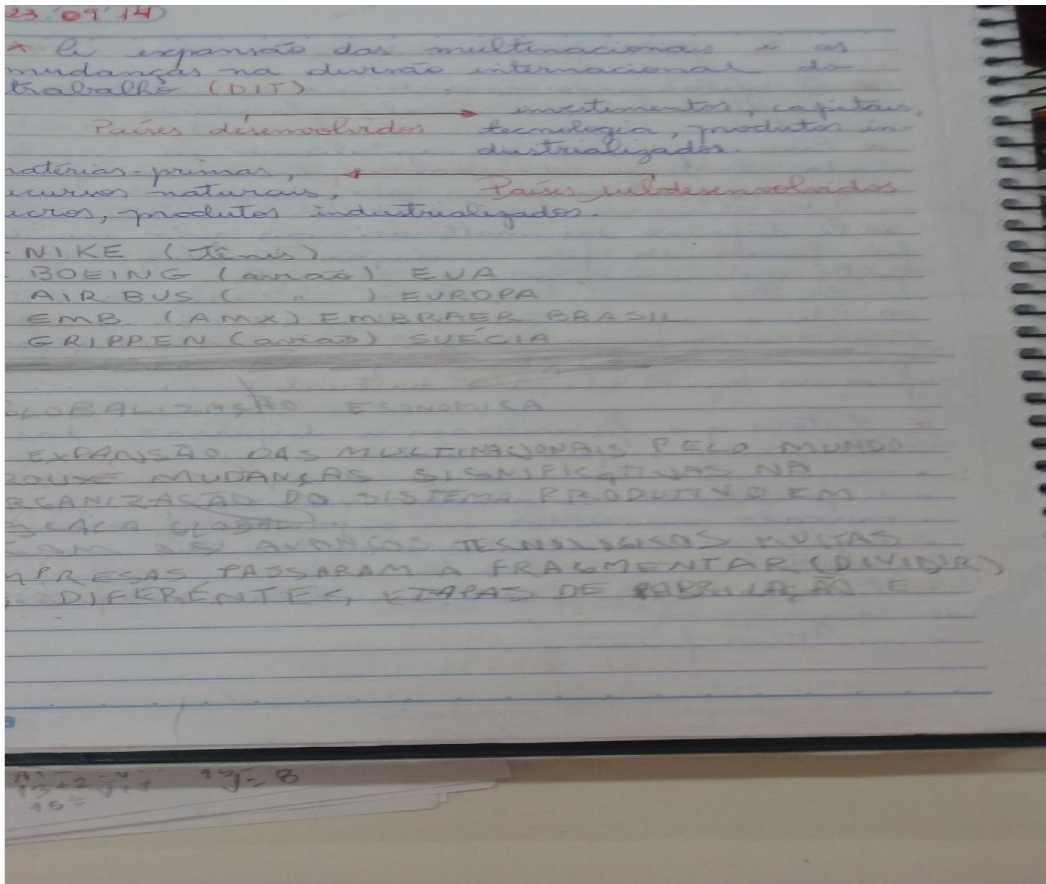 23 09 14
* A expansão das multinacionais e as
mudanças na divisão internacional do
trabalho (DIT)
investimentos, capitais,
Países desenvolvidos tecnologia, produtos in-
dustrializados.
matérias-primas,
ecursos naturais, Países subdesenvolvidos
ucros, produtos industrializados.
- NIKE (tênis)
- BOEING (avião) EUA
AIR BUS ( " ) EUROPA
EMB. (AMX) EMBRAER BRASIL
GRIPPEN (avião) SUÉCIA
GLOBALIZAÇÃO ECONOMICA
EXPANSÃO DAS MULTINACIONAIS PELO MUNDO
ROUXE MUDANÇAS SIGNIFICATIVAS NA
RGANIZAÇÃO DO SISTEMA PRODUTIVO EM
ESCALA GLOBAL
COM OS AVANÇOS TECNOLOGICOS MUITAS
MPRESAS PASSARAM A FRAGMENTAR (DIVIDIR)
DIFERENTES ETAPAS DE FABRICAÇÃO E
13+2
y= 8
15=